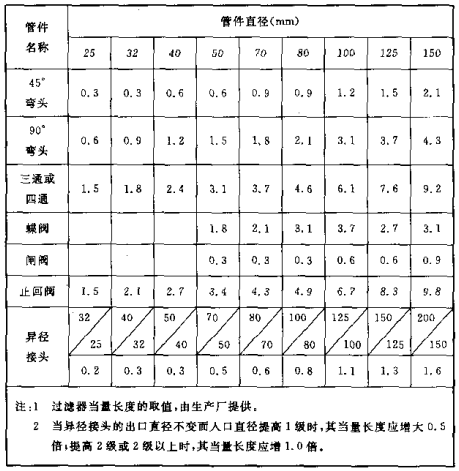 管件名称 管件直径(mm)
25 32 40 50 70 80 100 125 150
45°弯头 0.3 0.3 0.6 0.6 0.9 0.9 1.2 1.5 2.1
90°弯头 0.6 0.9 1.2 1.5 1.8 2.1 3.1 3.7 4.3
三通或四通 1.5 1.8 2.4 3.1 3.7 4.6 6.1 7.6 9.2
蝶阀 1.8 2.1 3.1 3.7 2.7 3.1
闸阀 0.3 0.3 0.3 0.6 0.6 0.9
止回阀 1.5 2.1 2.7 3.4 4.3 4.9 6.7 8.3 9.8
异径接头 32/25 40/32 50/40 70/50 80/70 100/80 125/100 150/125 200/150
0.2 0.3 0.3 0.5 0.6 0.8 1.1 1.3 1.6
注:1 过滤器当量长度的取值,由生产厂提供。
2 当异径接头的出口直径不变而入口直径提高1级时,其当量长度应增大0.5
倍;提高2级或2级以上时,其当量长度应增1.0倍。